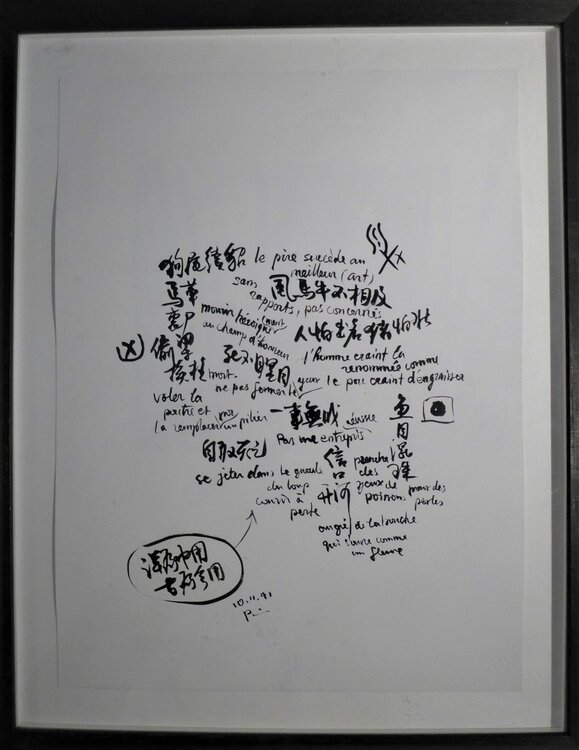 狗尾續貂 le pire succède au
meilleur (art)
馬革
裹尸
sans
rapports, pas concernés
風馬牛不相及
mourir héroïquement
au champ d'honneur
人怕出名猪怕壯
l'homme craint la
renommée comme
le porc craint d'engraisser
凶
偷梁
換柱
voler la
poutre et
la remplacer un pilier
死不瞑目
mort
ne pas fermer les yeux
一事無成
Pas une entrepris
réussie
魚
目
混
珠
prendre
des
yeux de
poisson
pour des
perles
自取灭亡
se jeter dans la gueule
du loup
courir à
perte
信
口
开河
au gré de la bouche
qui s'ouvre comme
un fleuve
洋为中用
古为今用
10.11.91